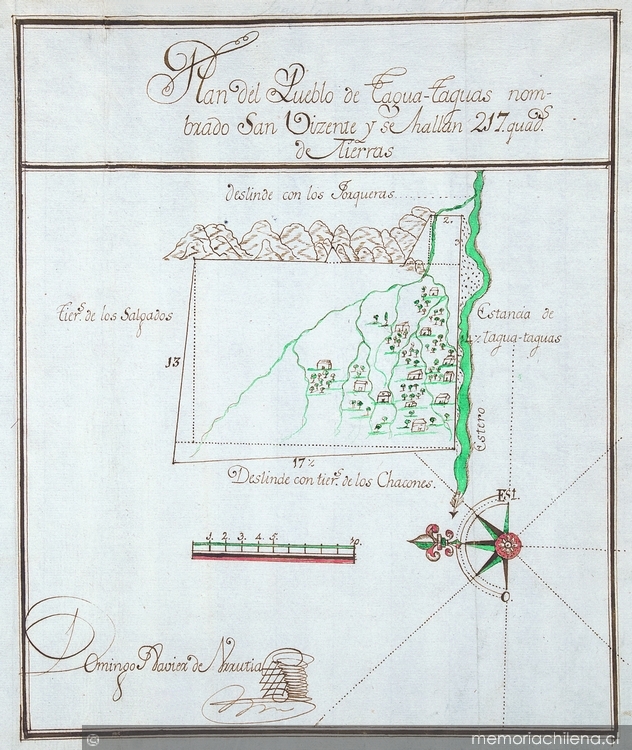 Plan del Pueblo de Tagua-taguas nom-
brado San Vizente y se hallan 217. quad.s
de Tierras
deslinde con los Porqueras
2.
Tier.s de los Salgados
Estancia de
tagua-taguas
13
Estero
17½
Deslinde con tier.s de los Chacones.
Est.
1. 2. 3. 4. 5. 10.
O.
Domingo Xavier de Vrrutia
memoriachilena.cl